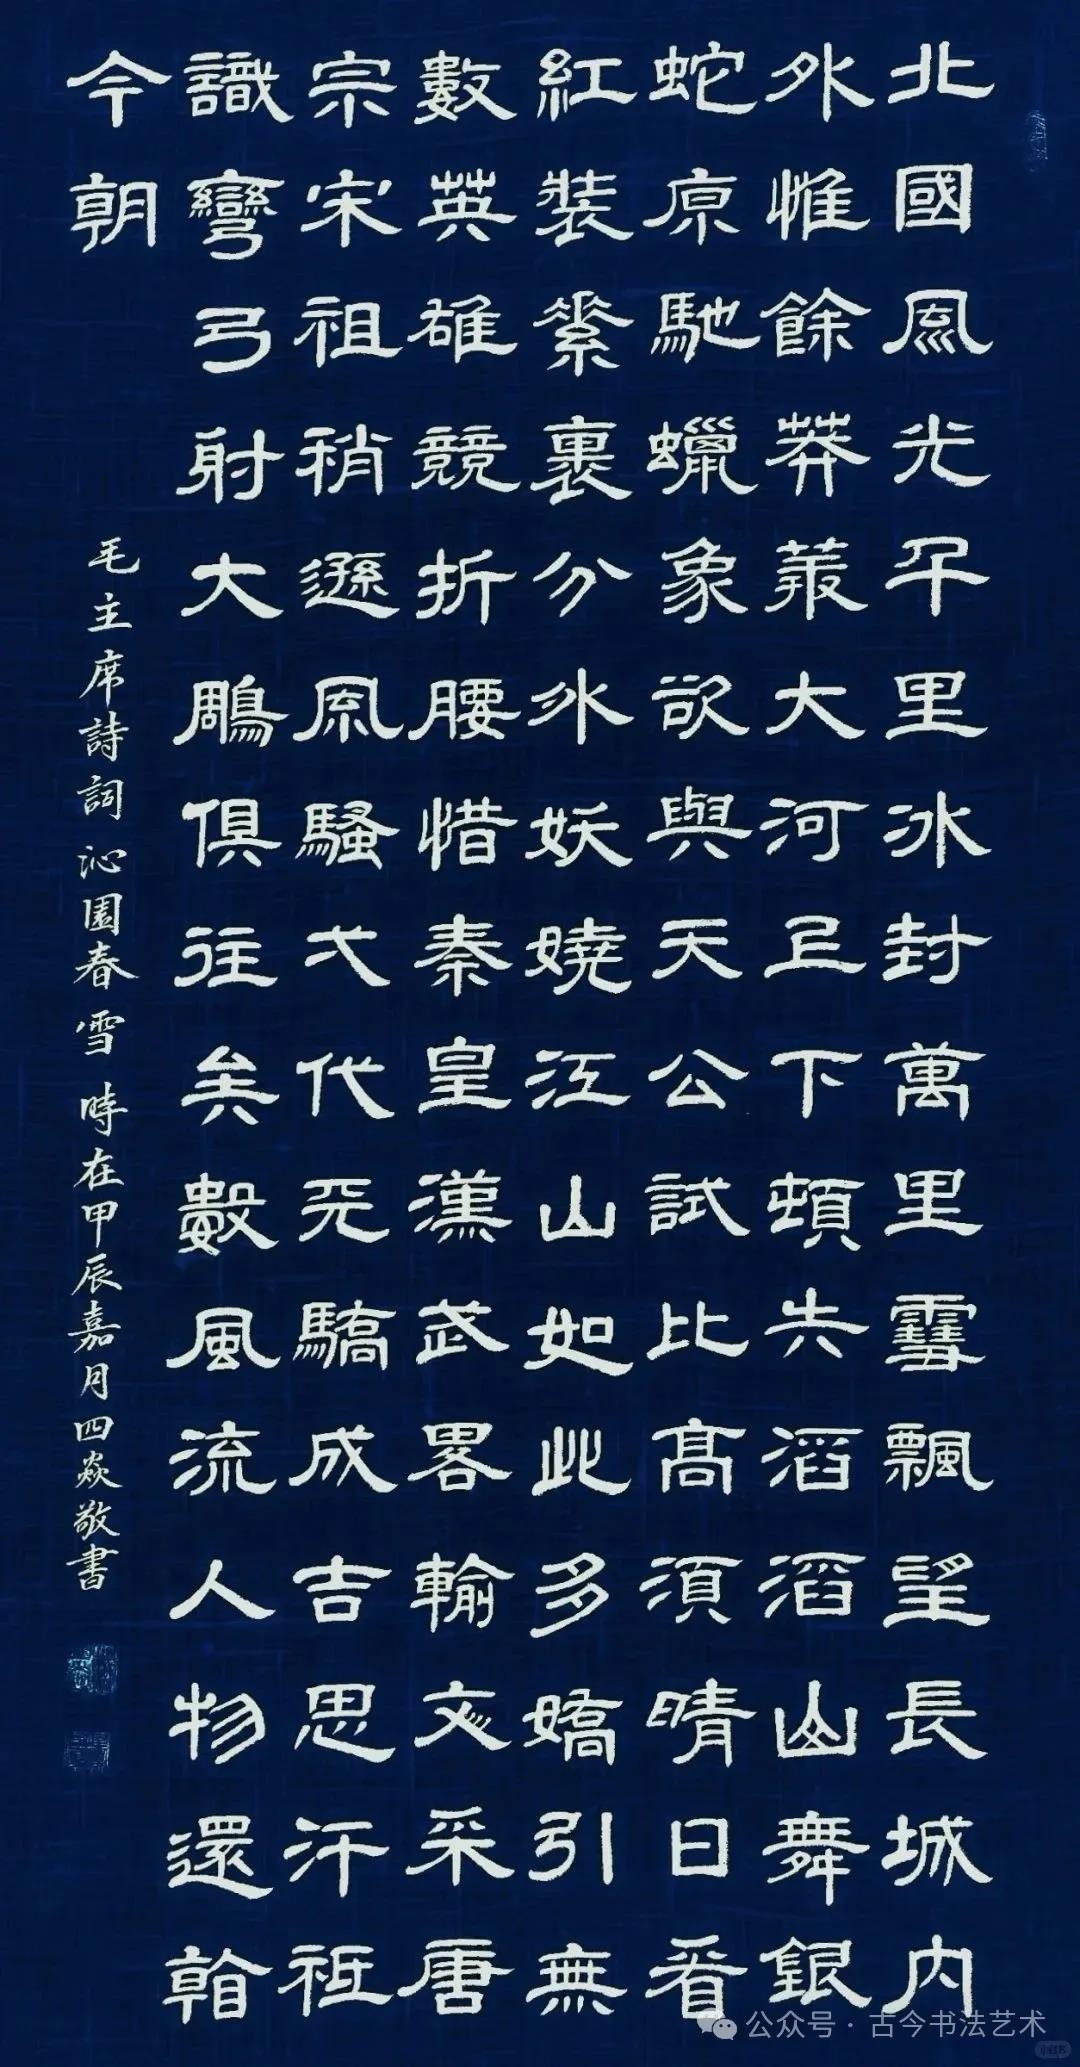 北國風光千里冰封萬里雪飄望長城內
外惟餘莽莽大河上下頓失滔滔山舞銀
蛇原馳蠟象欲與天公試比高須晴日看
紅裝素裹分外妖嬈江山如此多嬌引無
數英雄競折腰惜秦皇漢武畧輸文采唐
宗宋祖稍遜風騷弌代天驕成吉思汗祗
識彎弓射大鵰俱往矣數風流人物還看
今朝
毛主席詩詞沁園春雪時在甲辰嘉月四焱敬書
公众号·古今书法艺术